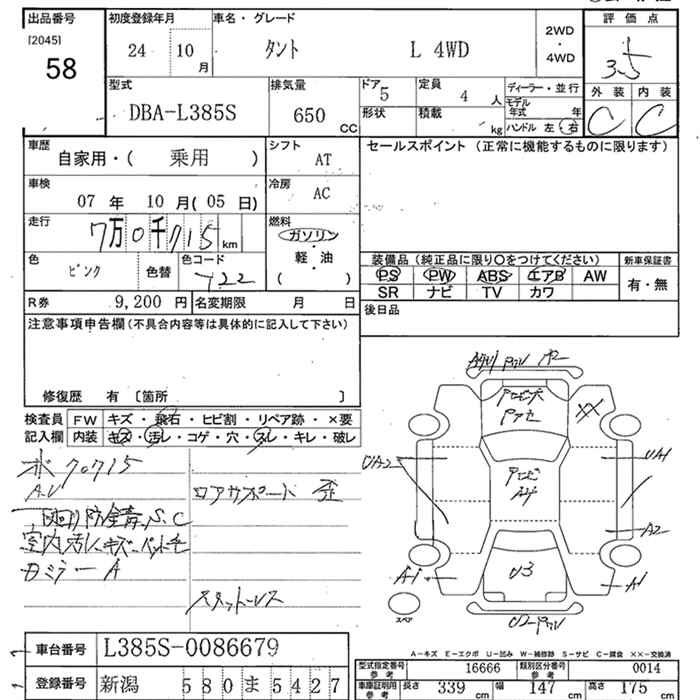 出品番号 初度登録年月 車名・グレード 評価点
[2045] 58
24 10月 タント L 4WD 2WD・4WD 3.5
型式 排気量 ドア 5 定員 4人 ディーラー・並行 外装 内装
DBA-L385S 650 CC 形状 積載 kg モデル年式 年 C C
ハンドル 左・右
車歴 シフト セールスポイント (正常に機能するものに限ります)
自家用・( 乗用 ) AT
車検 冷房
07年 10月(05日) AC
走行 燃料
7万0千715km ガソリン
軽・油
( )
色 色替 色コード 装備品(純正品に限り○をつけてください) 新車保証書
ピンク T22 PS PW ABS エアB AW 有・無
SR ナビ TV カワ
R券 9,200円 名変期限 月 日 後日品
注意事項申告欄(不具合内容等は具体的に記入して下さい)
修復歴 有 [箇所 ]
検査員 FW キズ・飛石・ヒビ割・リペア跡・×要
記入欄 内装 キズ・汚レ・コゲ・穴・スレ・キレ・破レ
70715
ロアサポート 歪
下回り防錆 S.C
室内汚レキズ
A
XX
UA2 UA1
A2
U3
A1 A1
スペア
A-キズ E-エクボ U-凹み W-補修跡 S-サビ C-腐食 XX-交換済
車台番号 L385S-0086679
型式指定番号 参考 16666 類別区分番号 参考 0014
登録番号 新潟 580ま5427
車庫証明用 参考 長さ 339cm 幅 147cm 高さ 175cm